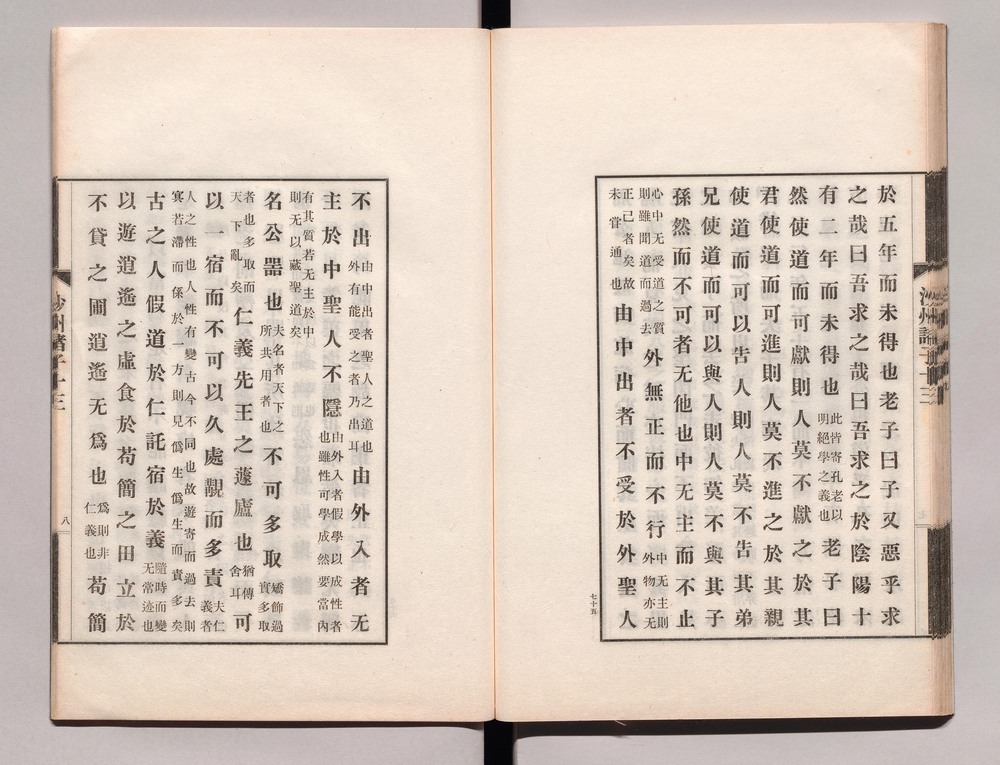 於五年而未得也老子曰子又惡乎求
之哉曰吾求之哉曰吾求之於陰陽十
有二年而未得也此皆寄孔老以明絕學之義也老子曰
然使道而可獻則人莫不獻之於其
君使道而可進則人莫不進之於其親
使道而可以告人則人莫不告其弟
兄使道而可以與人則人莫不與其子
孫然而不可者无他也中无主而不止
心中无受道之質則雖聞道而過去外無正而不行中无主則外物亦无
正己者矣故未甞通也由中出者不受於外聖人
七十五
不出由中出者聖人之道也外有能受之者乃出耳由外入者无
主於中聖人不隱由外入者假學以成性者也雖性可學成然要當內
有其質若无主於中則无以藏聖道矣
名公噐也夫名者天下之所共用者也不可多取矯飾過實多取
者也多取而天下亂矣仁義先王之蘧廬也猶傳舍耳可
以一宿而不可以久處覯而多責夫仁義者
人之性也人性有變古今不同也故遊寄而過去則冥若滯而係於一方則見僞生僞生而責多矣
古之人假道於仁託宿於義隨時而變无常迹也
以遊逍遙之虛食於苟簡之田立於
不貸之圃逍遙无爲也爲則非仁義也苟簡
沙州諸子十三
八